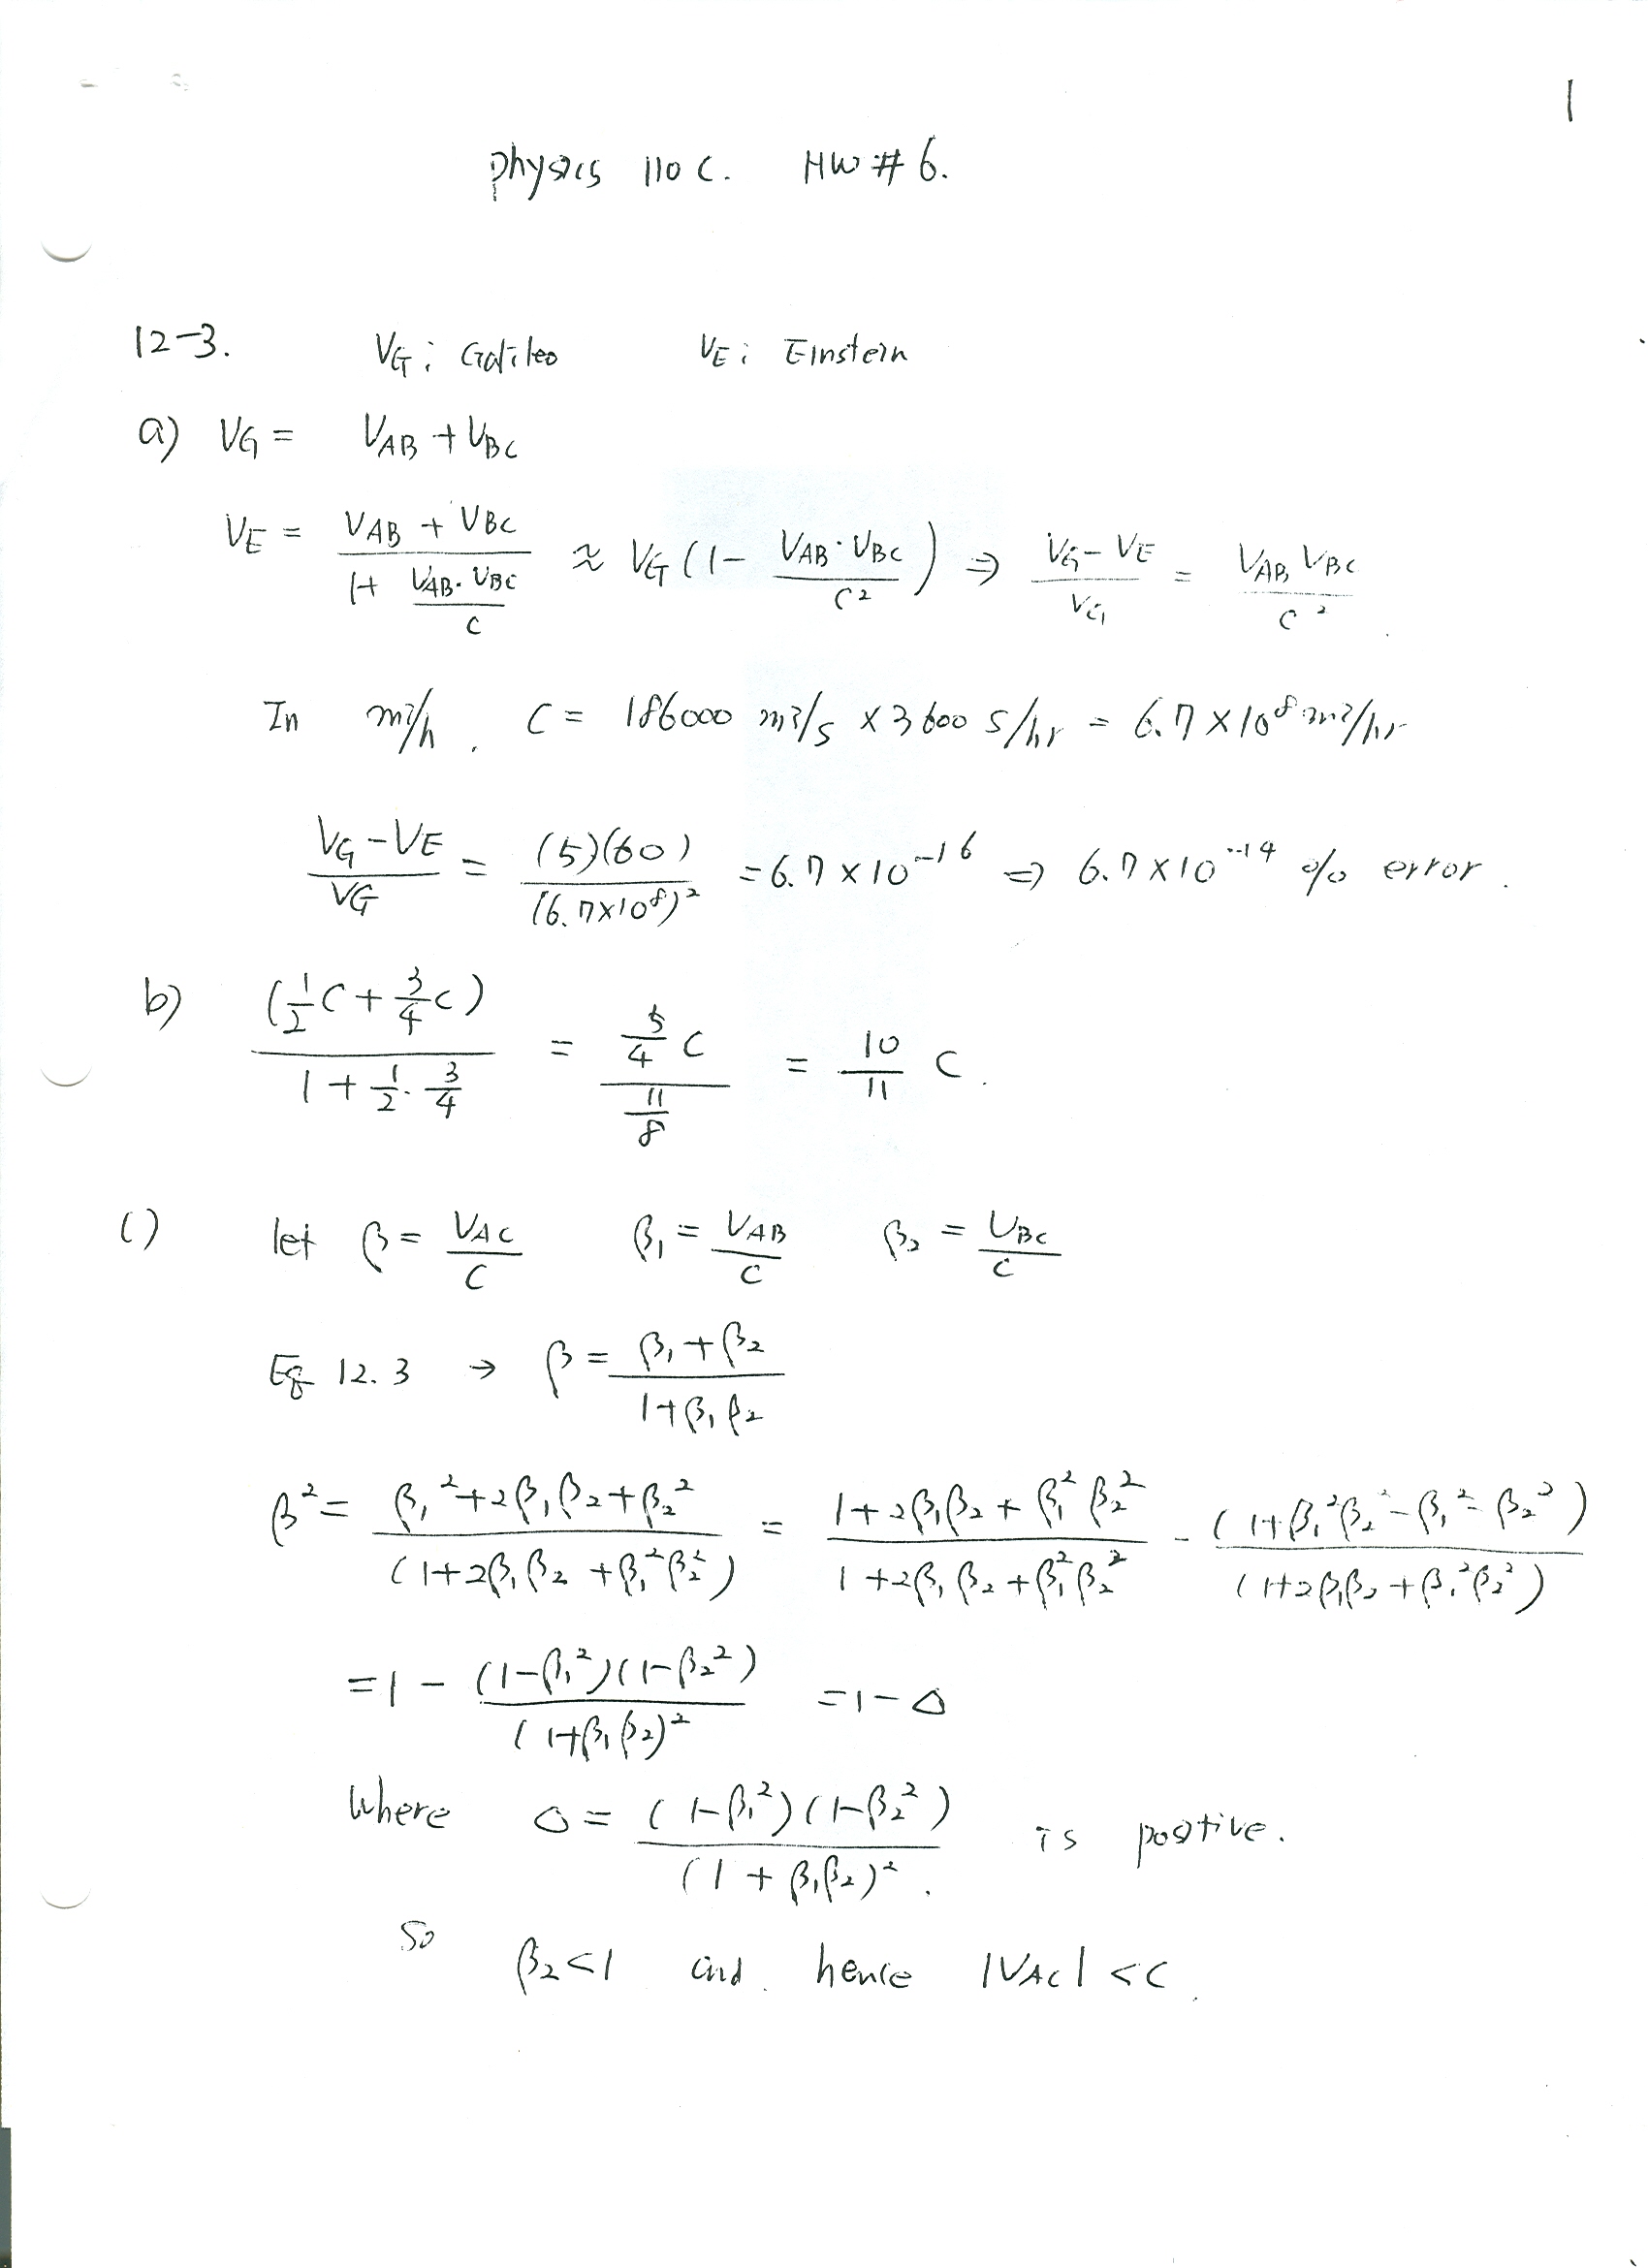 1
Physics 110 C. HW # 6.
12-3. VG : Galileo VE : Einstein
a) VG = VAB + VBC
VE = (VAB + VBC) / (1 + (VAB · VBC)/C) ≈ VG (1 - (VAB · VBC)/C²) ⇒ (VG - VE)/VG = (VAB VBC)/C²
In mi/h. C = 186000 mi/s × 3600 s/hr = 6.7 × 10⁸ mi/hr
(VG - VE)/VG = (5)(60)/(6.7×10⁸)² = 6.7 × 10⁻¹⁶ ⇒ 6.7 × 10⁻¹⁴ % error.
b) (½C + ¾C)/(1 + ½·¾) = (5/4 C)/(11/8) = 10/11 C.
c) let β = VAC/C β₁ = VAB/C β₂ = VBC/C
Eq 12.3 → β = (β₁ + β₂)/(1 + β₁β₂)
β² = (β₁² + 2β₁β₂ + β₂²)/(1 + 2β₁β₂ + β₁²β₂²) = (1 + 2β₁β₂ + β₁²β₂²)/(1 + 2β₁β₂ + β₁²β₂²) - (1 + β₁²β₂² - β₁² - β₂²)/(1 + 2β₁β₂ + β₁²β₂²)
= 1 - (1 - β₁²)(1 - β₂²)/(1 + β₁β₂)² = 1 - Δ
Where Δ = (1 - β₁²)(1 - β₂²)/(1 + β₁β₂)². is positive.
So
β₂ < 1 and. hence |VAC| < C.